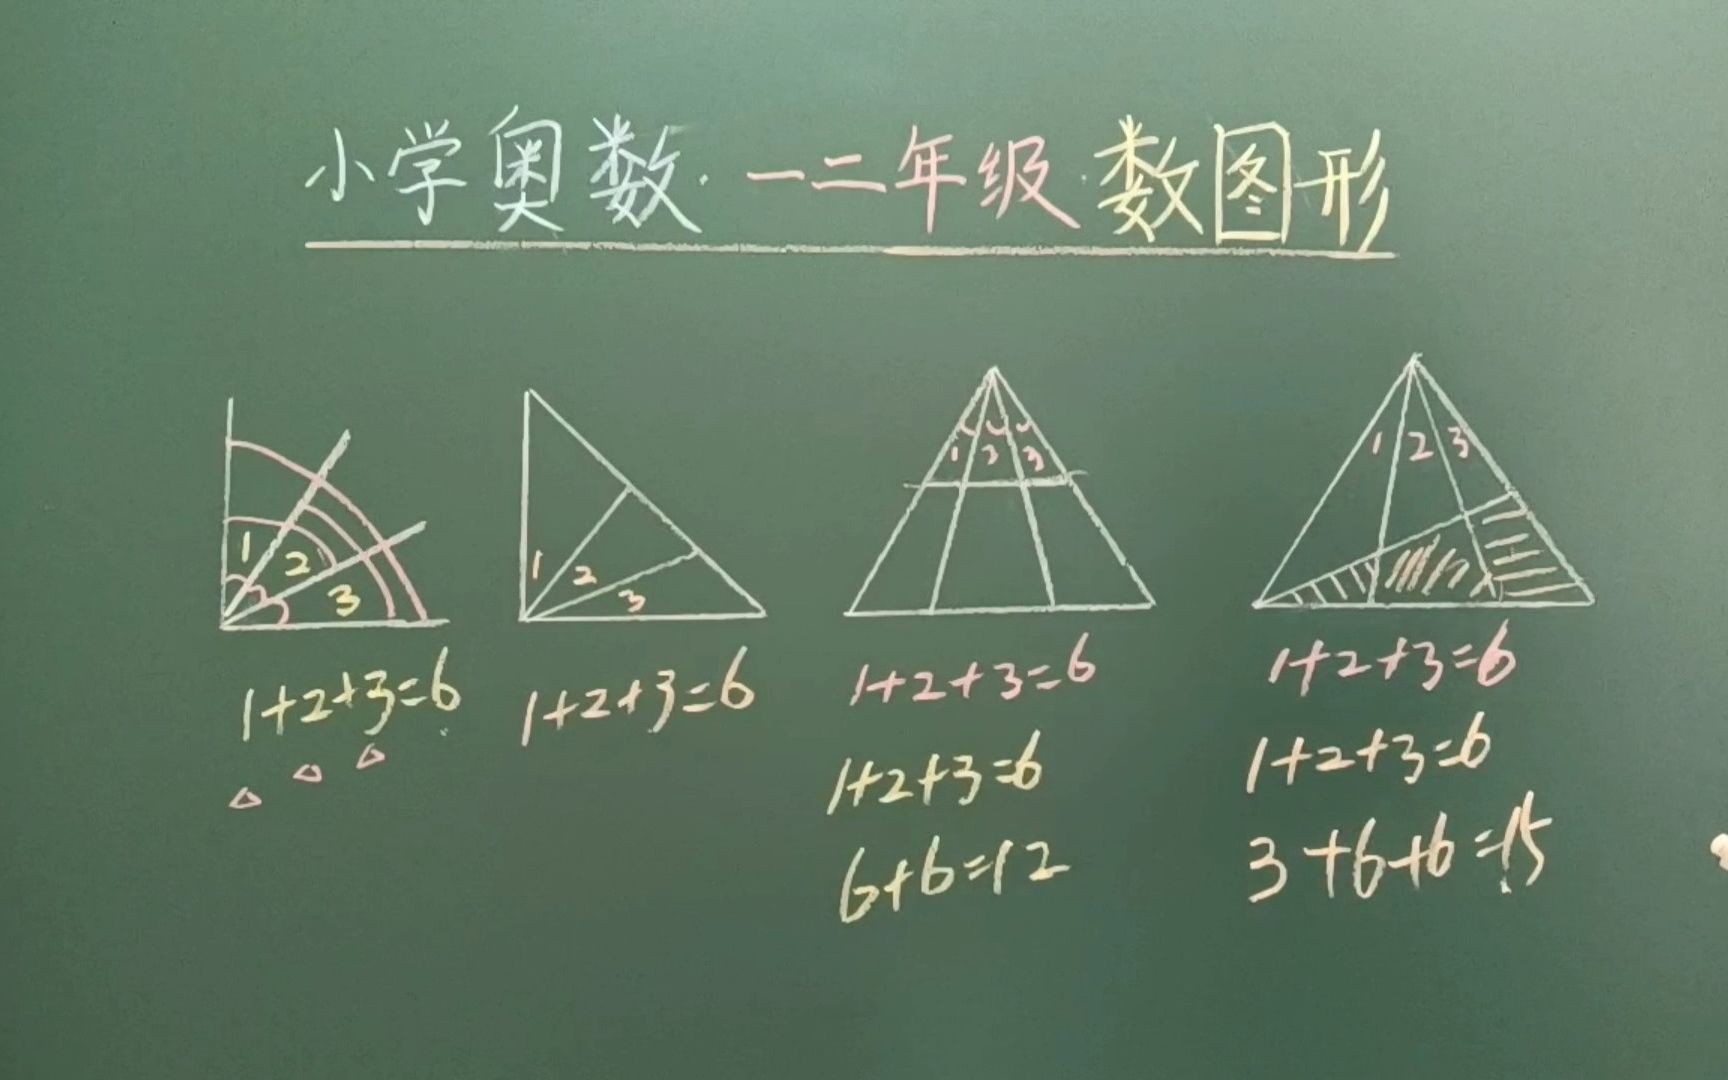 小学奥数·一二年级·数图形
1 2 3
1 2 3
1 2 3
1 2 3
1+2+3=6
1+2+3=6
1+2+3=6
1+2+3=6
1+2+3=6
1+2+3=6
6+6=12
3+6+6=15